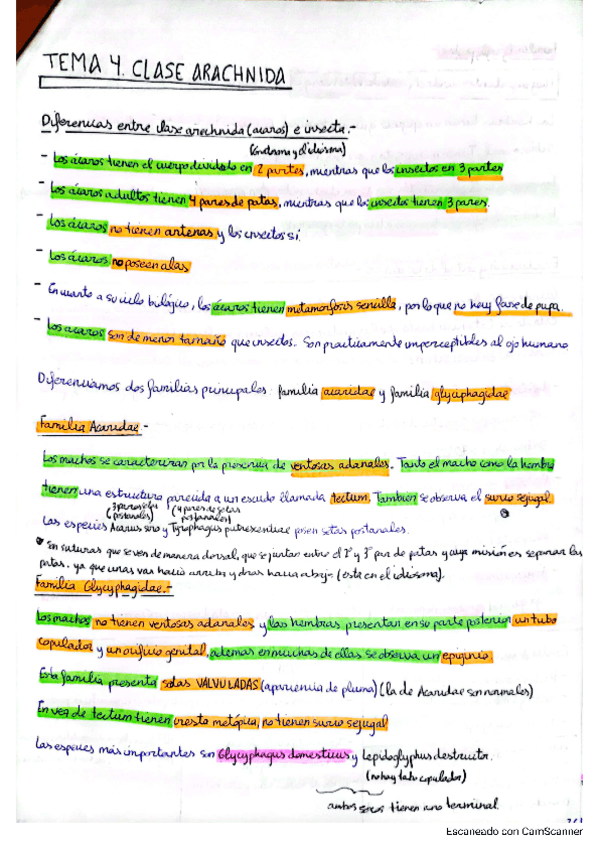 TEMA 4. CLASE ARACHNIDA
Diferencias entre clase arachnida (ácaros) e insecta.-
(gnatosoma y el idiosoma)
- Los ácaros tienen el cuerpo dividido en 2 partes, mientras que los insectos en 3 partes
- Los ácaros adultos tienen 4 pares de patas, mientras que los insectos tienen 3 pares.
- Los ácaros no tienen antenas y los insectos sí.
- Los ácaros no poseen alas
- En cuanto a su ciclo biológico, los ácaros tienen metamorfosis sencilla, por lo que no hay fase de pupa.
- Los ácaros son de menor tamaño que insectos. Son practicamente imperceptibles al ojo humano
Diferenciamos dos familias principales: familia acaridae y familia glyciphagidae
Familia Acaridae.-
Los machos se caracterizan por la presencia de ventosas adanales. Tanto el macho como la hembra
tienen una estructura parecida a un escudo llamada tectum. También se observa el surco sejugal
(3 pares setas postanales) (4 pares de setas postanales)
Las especies Acarus siro y Tyrophagus putrescentiae poseen setas postanales.
* Son suturas que se ven de manera dorsal, que se juntan entre el 2º y 3º par de patas y cuya misión es separar las
patas, ya que unas van hacia arriba y otras hacia abajo (está en el idiosoma).
Familia Glycyphagidae.-
Los machos no tienen ventosas adanales y las hembras presentan en su parte posterior un tubo
copulador y un orificio genital, además en muchas de ellas se observa un epiginio
Esta familia presenta setas VALVULADAS (apariencia de pluma) (la de Acaridae son normales)
En vez de tectum tienen cresta metópica, no tienen surco sejugal
Las especies más importantes son Glycyphagus domesticus y Lepidoglyphus destructor.
(no hay tubo copulador)
ambos tienen uno terminal.
Escaneado con CamScanner